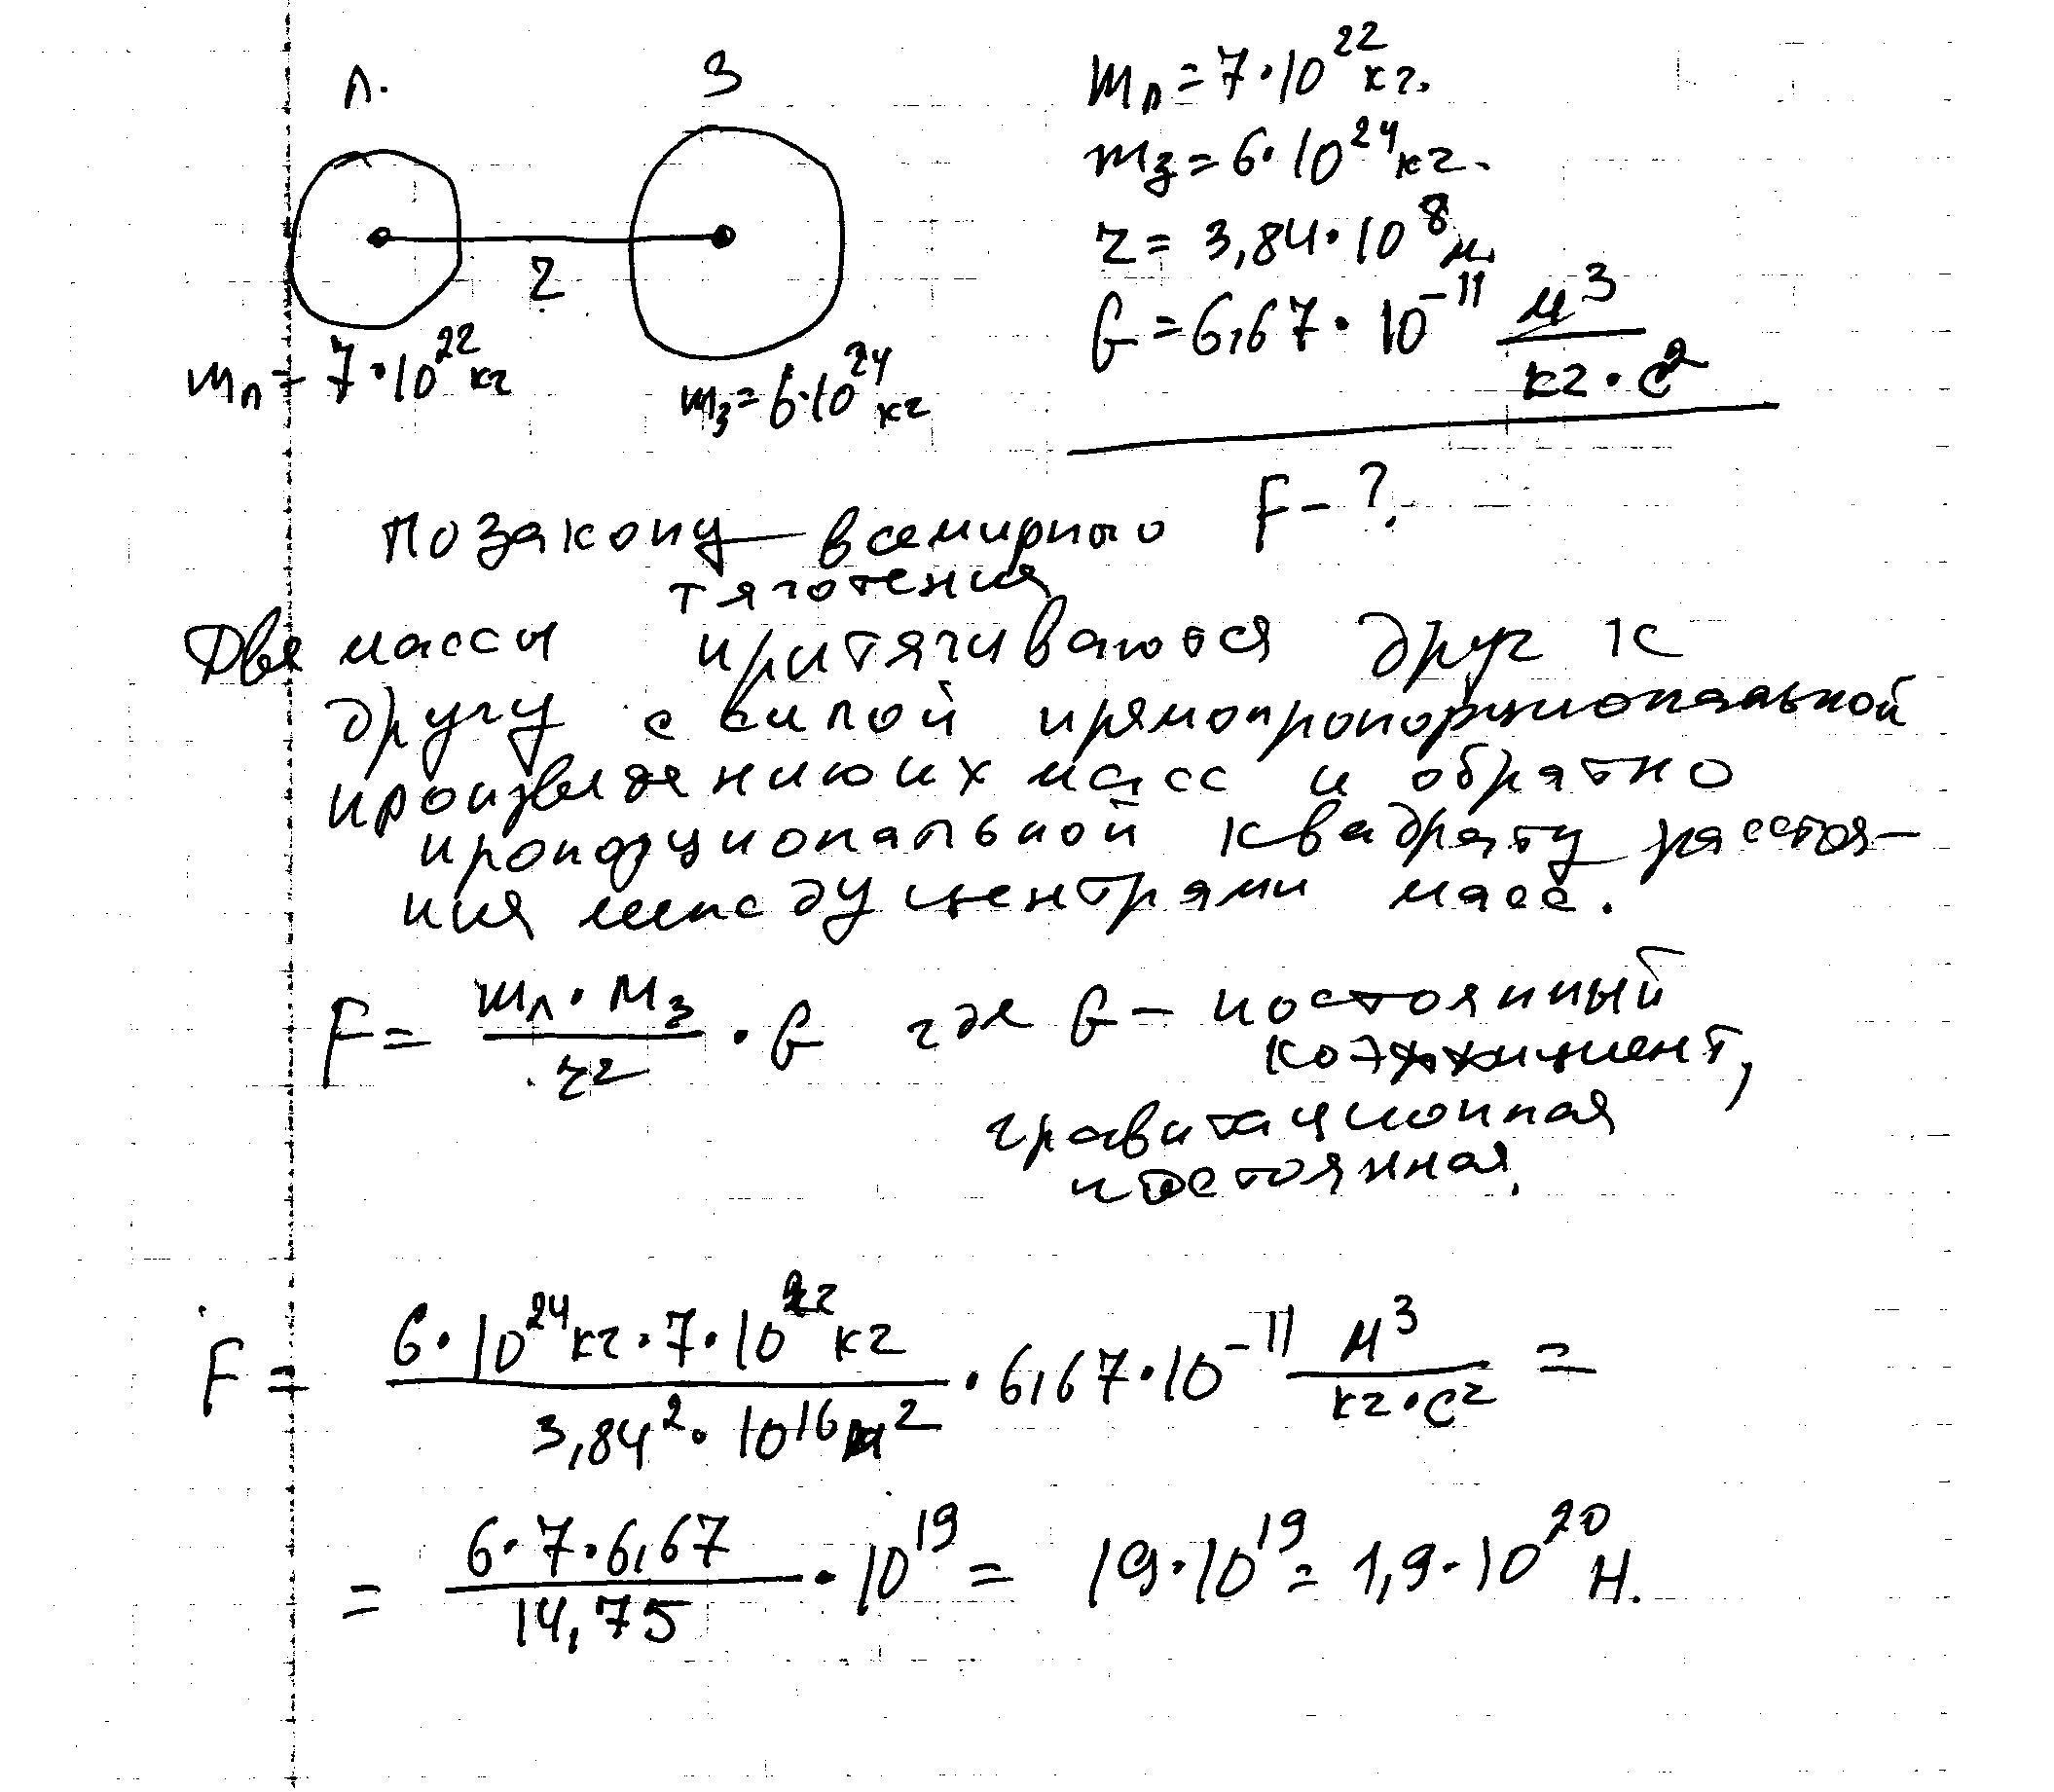 Л.
З
r
mл = 7·10²² кг
mз = 6·10²⁴ кг
mл = 7·10²² кг.
mз = 6·10²⁴ кг.
r = 3,84·10⁸ м.
G = 6,67·10⁻¹¹ м³/(кг·с²)
F - ?
По закону всемирного
тяготения
Две массы притягиваются друг к
другу с силой прямопропорциональной
произведению их масс и обратно
пропорциональной квадрату расстоя-
ния между центрами масс.
F = (mл · Mз)/r² · G где G - постоянный
коэффициент,
гравитационная
постоянная.
F = (6·10²⁴ кг · 7·10²² кг)/(3,84² · 10¹⁶ м²) · 6,67·10⁻¹¹ м³/(кг·с²) =
= (6·7·6,67)/14,75 · 10¹⁹ = 19·10¹⁹ = 1,9·10²⁰ Н.